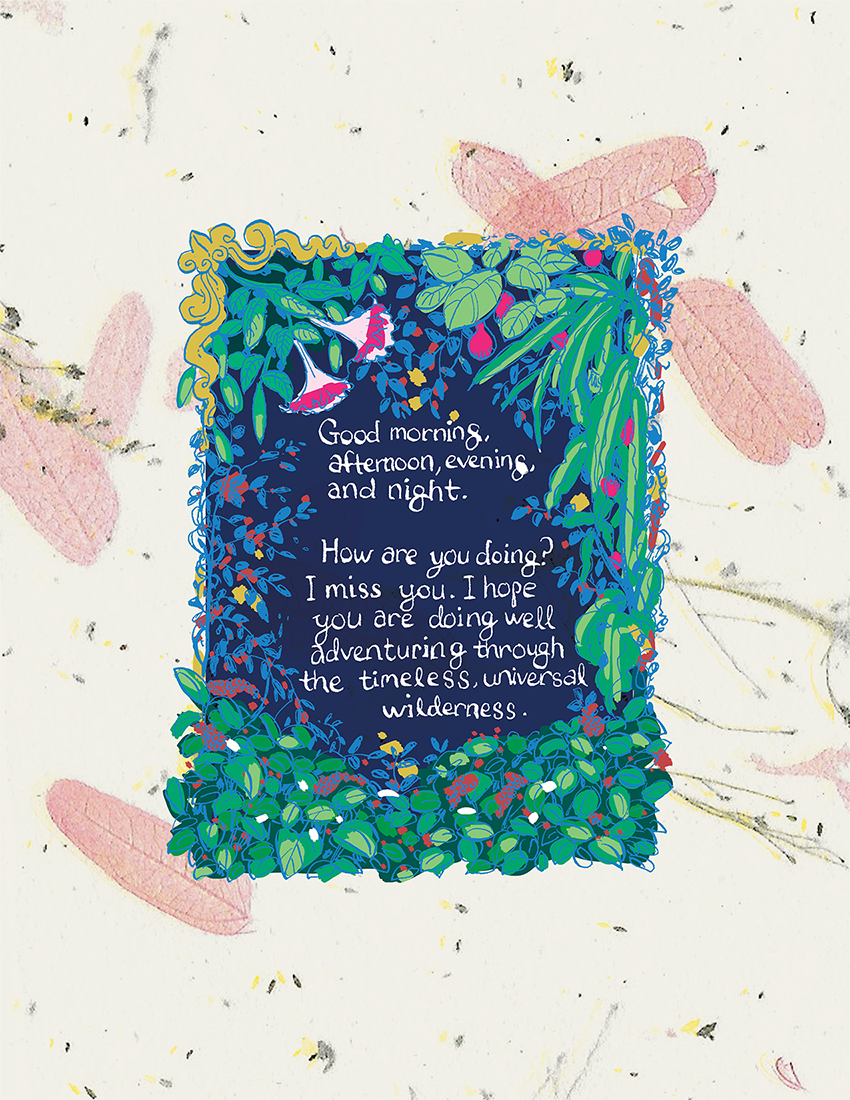 Good morning,
afternoon, evening,
and night.
How are you doing?
I miss you. I hope
you are doing well
adventuring through
the timeless, universal
wilderness.